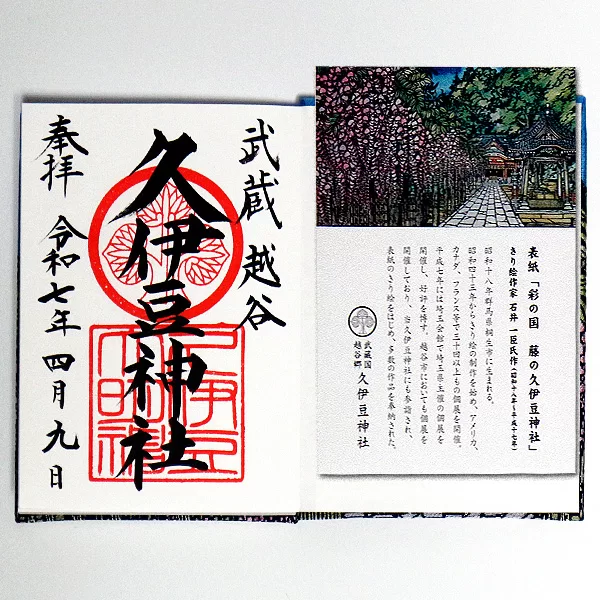 武蔵 越谷
久伊豆神社
奉拝 令和七年 四月 九日
表紙「彩の国 藤の久伊豆神社」
きり絵作家 石井 一臣氏作(昭和十八年~平成十七年)
昭和十八年群馬県桐生市に生まれる。
昭和四十三年からきり絵の制作を始め、アメリカ、
カナダ、フランス等で三十回以上もの個展を開催。
平成七年には埼玉会館で埼玉県主催の個展を
開催し、好評を博す。越谷市においても個展を
開催しており、当久伊豆神社にも参詣され、
表紙のきり絵をはじめ、多数の作品を奉納された。
武蔵国
越谷郷 久伊豆神社